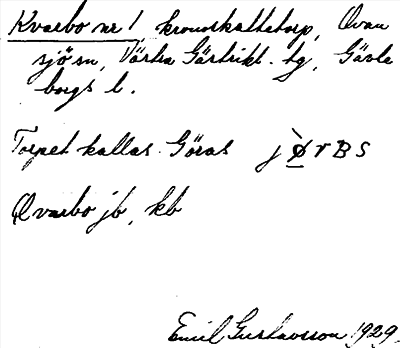 Kvarbo nr 1 kronoskattetorp, Ovan
sjö sn, Västra Gästrikl. tg, Gävle
borgs l.
Torpet kallas Göras
Qvarbo jb, kb
Emil Gustavsson 1929.